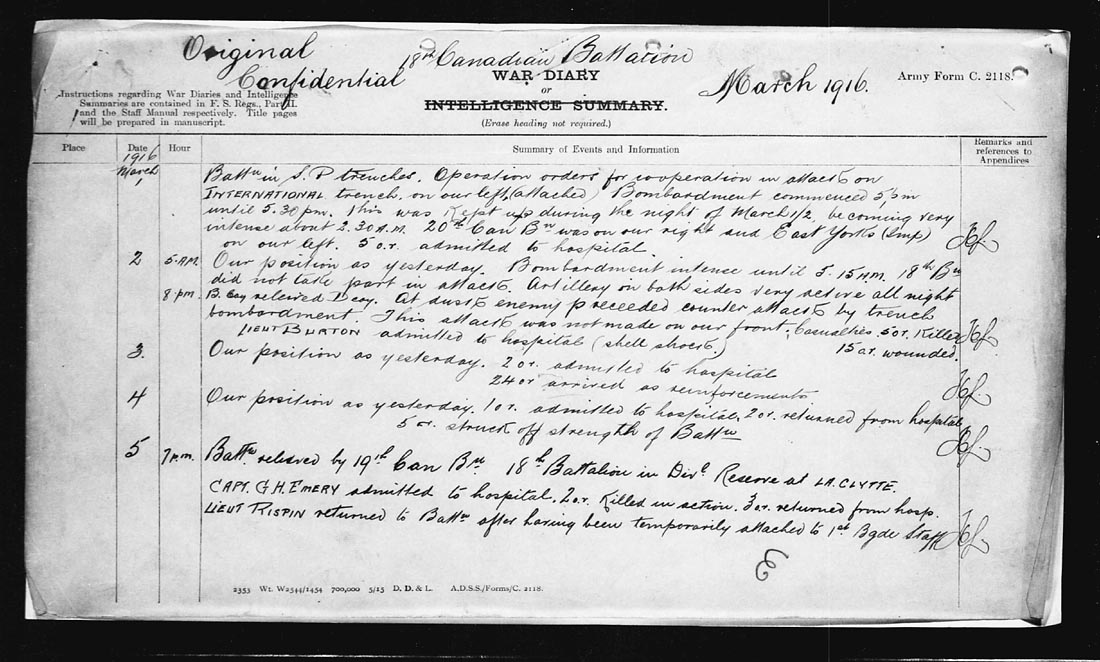 Original
Confidential
18th Canadian Battalion
WAR DIARY
or
INTELLIGENCE SUMMARY.
(Erase heading not required.)
March 1916.
Army Form C. 2118.
Instructions regarding War Diaries and Intelligence
Summaries are contained in F. S. Regs., Part II.
and the Staff Manual respectively. Title pages
will be prepared in manuscript.
Place
Date
Hour
Summary of Events and Information
Remarks and
references to
Appendices
1916
March
1
Battn in S.P trenches. Operation orders for cooperation in attack on
INTERNATIONAL trench, on our left, (attached) Bombardment commenced 5 pm
until 5.30 pm. This was kept up during the night of March 1/2, becoming very
intense about 2.30 A.M. 20th Can Bn was on our right and East Yorks (Imp)
on our left. 5 o.r. admitted to hospital.
2 5 AM. Our position as yesterday. Bombardment intense until 5.15 AM. 18th Bn
did not take part in attack. Artillery on both sides very active all night
8 pm. B. Coy relieved D coy. At dusk enemy preceeded counter attack by trench
bombardment. This attack was not made on our front. Casualties. 5 or. Killed
LIEUT BURTON admitted to hospital (shell shock.) 15 or. wounded.
3. Our position as yesterday. 2 or. admitted to hospital
24 or arrived as reinforcements
4 Our position as yesterday. 1 or. admitted to hospital. 2 or. returned from hospital
5 or. struck off strength of Battn
5 7 P.M. Battn relieved by 19th Can Bn. 18th Battalion in Divl Reserve at LA CLYTTE.
CAPT. G.H. EMERY admitted to hospital. 2 o.r. Killed in action. 3 or. returned from hosp.
LIEUT RISPIN returned to Battn after having been temporarily attached to 1st Bgde Staff
2353 Wt. W2544/1454 700,000 5/15 D. D. & L. A.D.S.S./Forms/C. 2118.